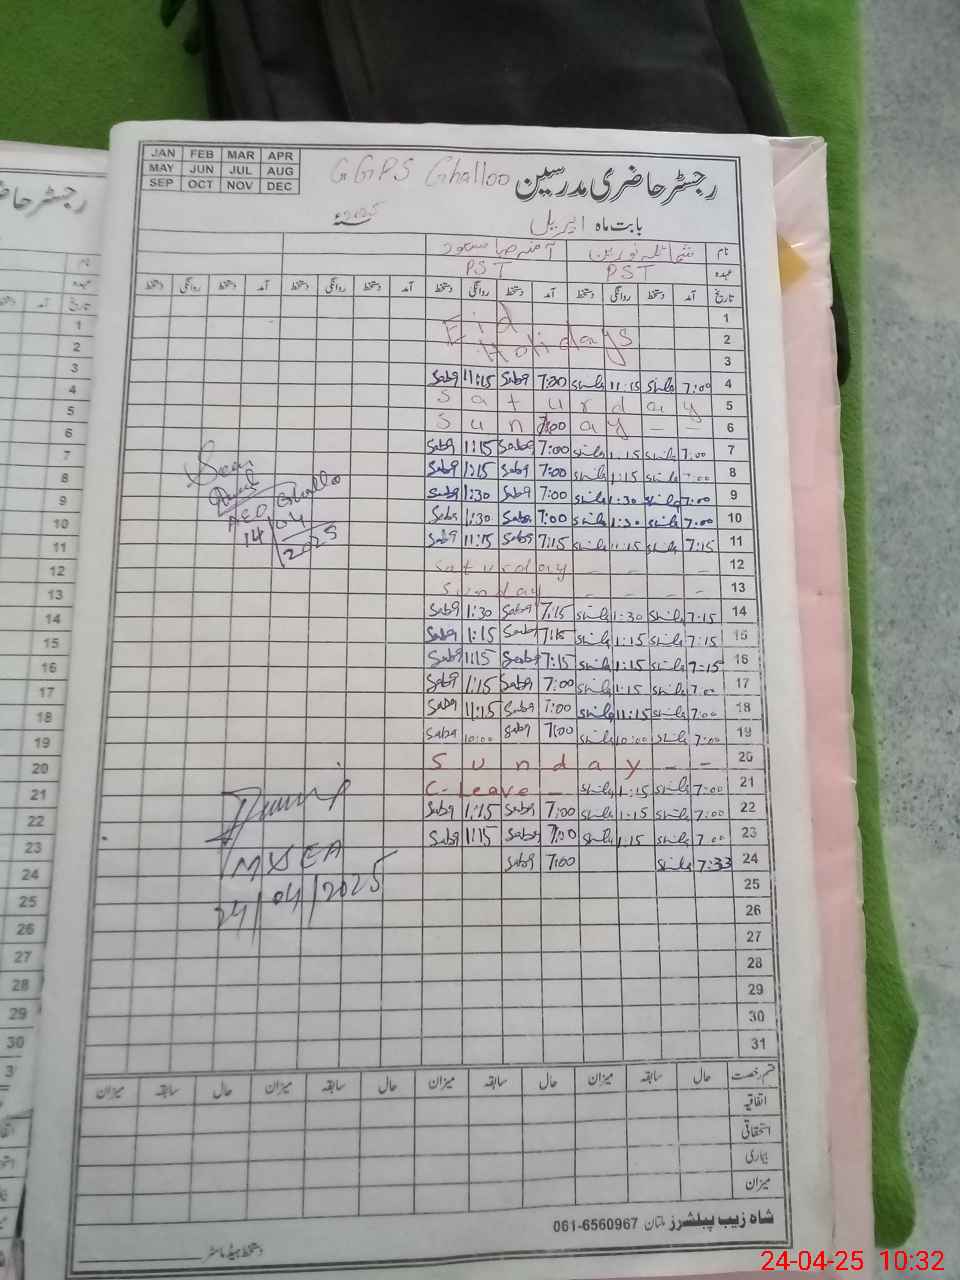 JAN FEB MAR APR
MAY JUN JUL AUG
SEP OCT NOV DEC
GGPS Ghalloo رجسٹر حاضری مدرسین
بابت ماہ اپریل 2025ء
نام شمائلہ نورین آمنہ صبا مسعود
عہدہ PST PST
تاریخ آمد دستخط روانگی دستخط آمد دستخط روانگی دستخط آمد دستخط روانگی دستخط آمد دستخط روانگی دستخط
1
Eid 2
Holidays 3
Saba 11:15 Saba 7:00 Shila 11:15 Shila 7:00 4
Saturday 5
Sun 7:00 ay - - 6
Saba 1:15 Saba 7:00 Shila 1:15 Shila 7:00 7
Saba 1:15 Saba 7:00 Shila 1:15 Shila 7:00 8
Saba 1:30 Saba 7:00 Shila 1:30 Shila 7:00 9
Saba 1:30 Saba 7:00 Shila 1:30 Shila 7:00 10
Saba 11:15 Saba 7:15 Shila 11:15 Shila 7:15 11
Saturday - - - - 12
Sunday - - - - 13
Saba 1:30 Saba 7:15 Shila 1:30 Shila 7:15 14
Saba 1:15 Saba 7:15 Shila 1:15 Shila 7:15 15
Saba 1:15 Saba 7:15 Shila 1:15 Shila 7:15 16
Saba 1:15 Saba 7:00 Shila 1:15 Shila 7:00 17
Saba 11:15 Saba 7:00 Shila 11:15 Shila 7:00 18
Saba 10:00 Saba 7:00 Shila 10:00 Shila 7:00 19
Sunday - - 20
C-Leave - Shila 1:15 Shila 7:00 21
Saba 1:15 Saba 7:00 Shila 1:15 Shila 7:00 22
Saba 1:15 Saba 7:00 Shila 1:15 Shila 7:00 23
Saba 7:00 Shila 7:33 24
25
26
27
28
29
30
31
Seen
AEO Ghalloo
14/04/2025
MSEA
24/04/2025
قسم رخصت حال سابقہ میزان حال سابقہ میزان حال سابقہ میزان حال سابقہ میزان
اتفاقیہ
استحقاقی
بیماری
میزان
شاہ زیب پبلشرز ملتان 061-6560967
دستخط ہیڈ ماسٹر
رجسٹر حاضر
نام
عہدہ
تاریخ آمد
1
2
3
4
5
6
7
8
9
10
11
12
13
14
15
16
17
18
19
20
21
22
23
24
25
26
27
28
29
30
3
24-04-25 10:32